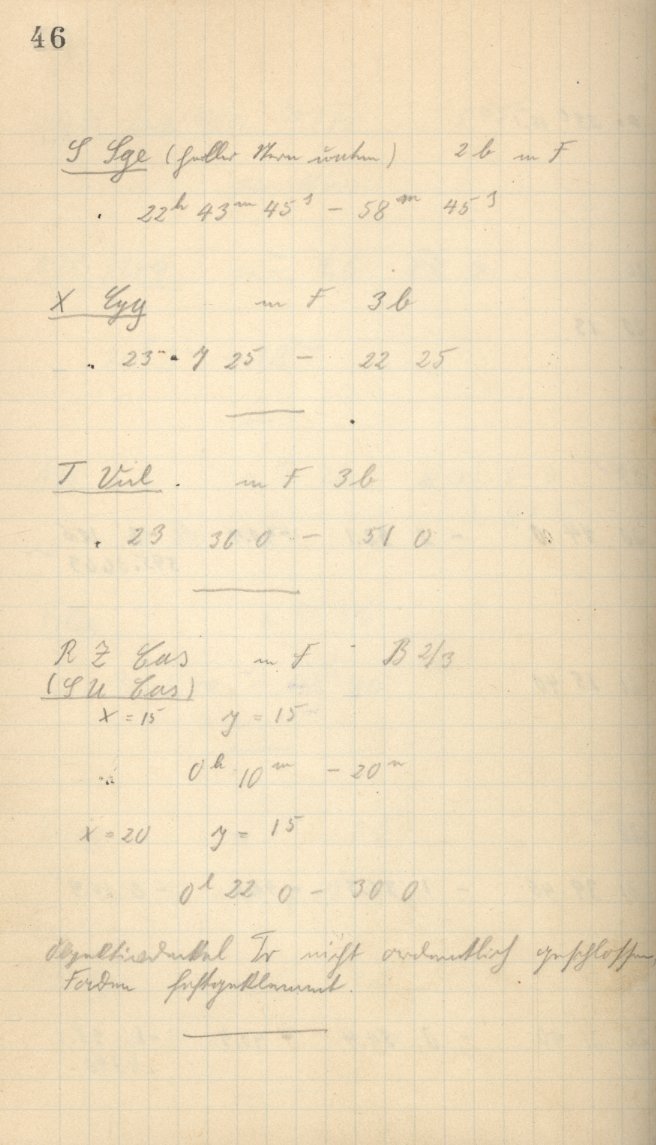 46
S Sge (heller Stern unten) 2 b m F
22h 43m 45s - 58m 45s
X Cyg m F 3 b
23 7 25 - 22 25
T Vul. m F 3 b
23 36 0 - 51 0
R Z Cas m F B 2/3
(S U Cas)
x = 15 y = 15
0h 10m - 20m
x = 20 y = 15
0h 22 0 - 30 0
Objektivdeckel Tr nicht ordentlich geschlossen,
Faden festgeklemmt.